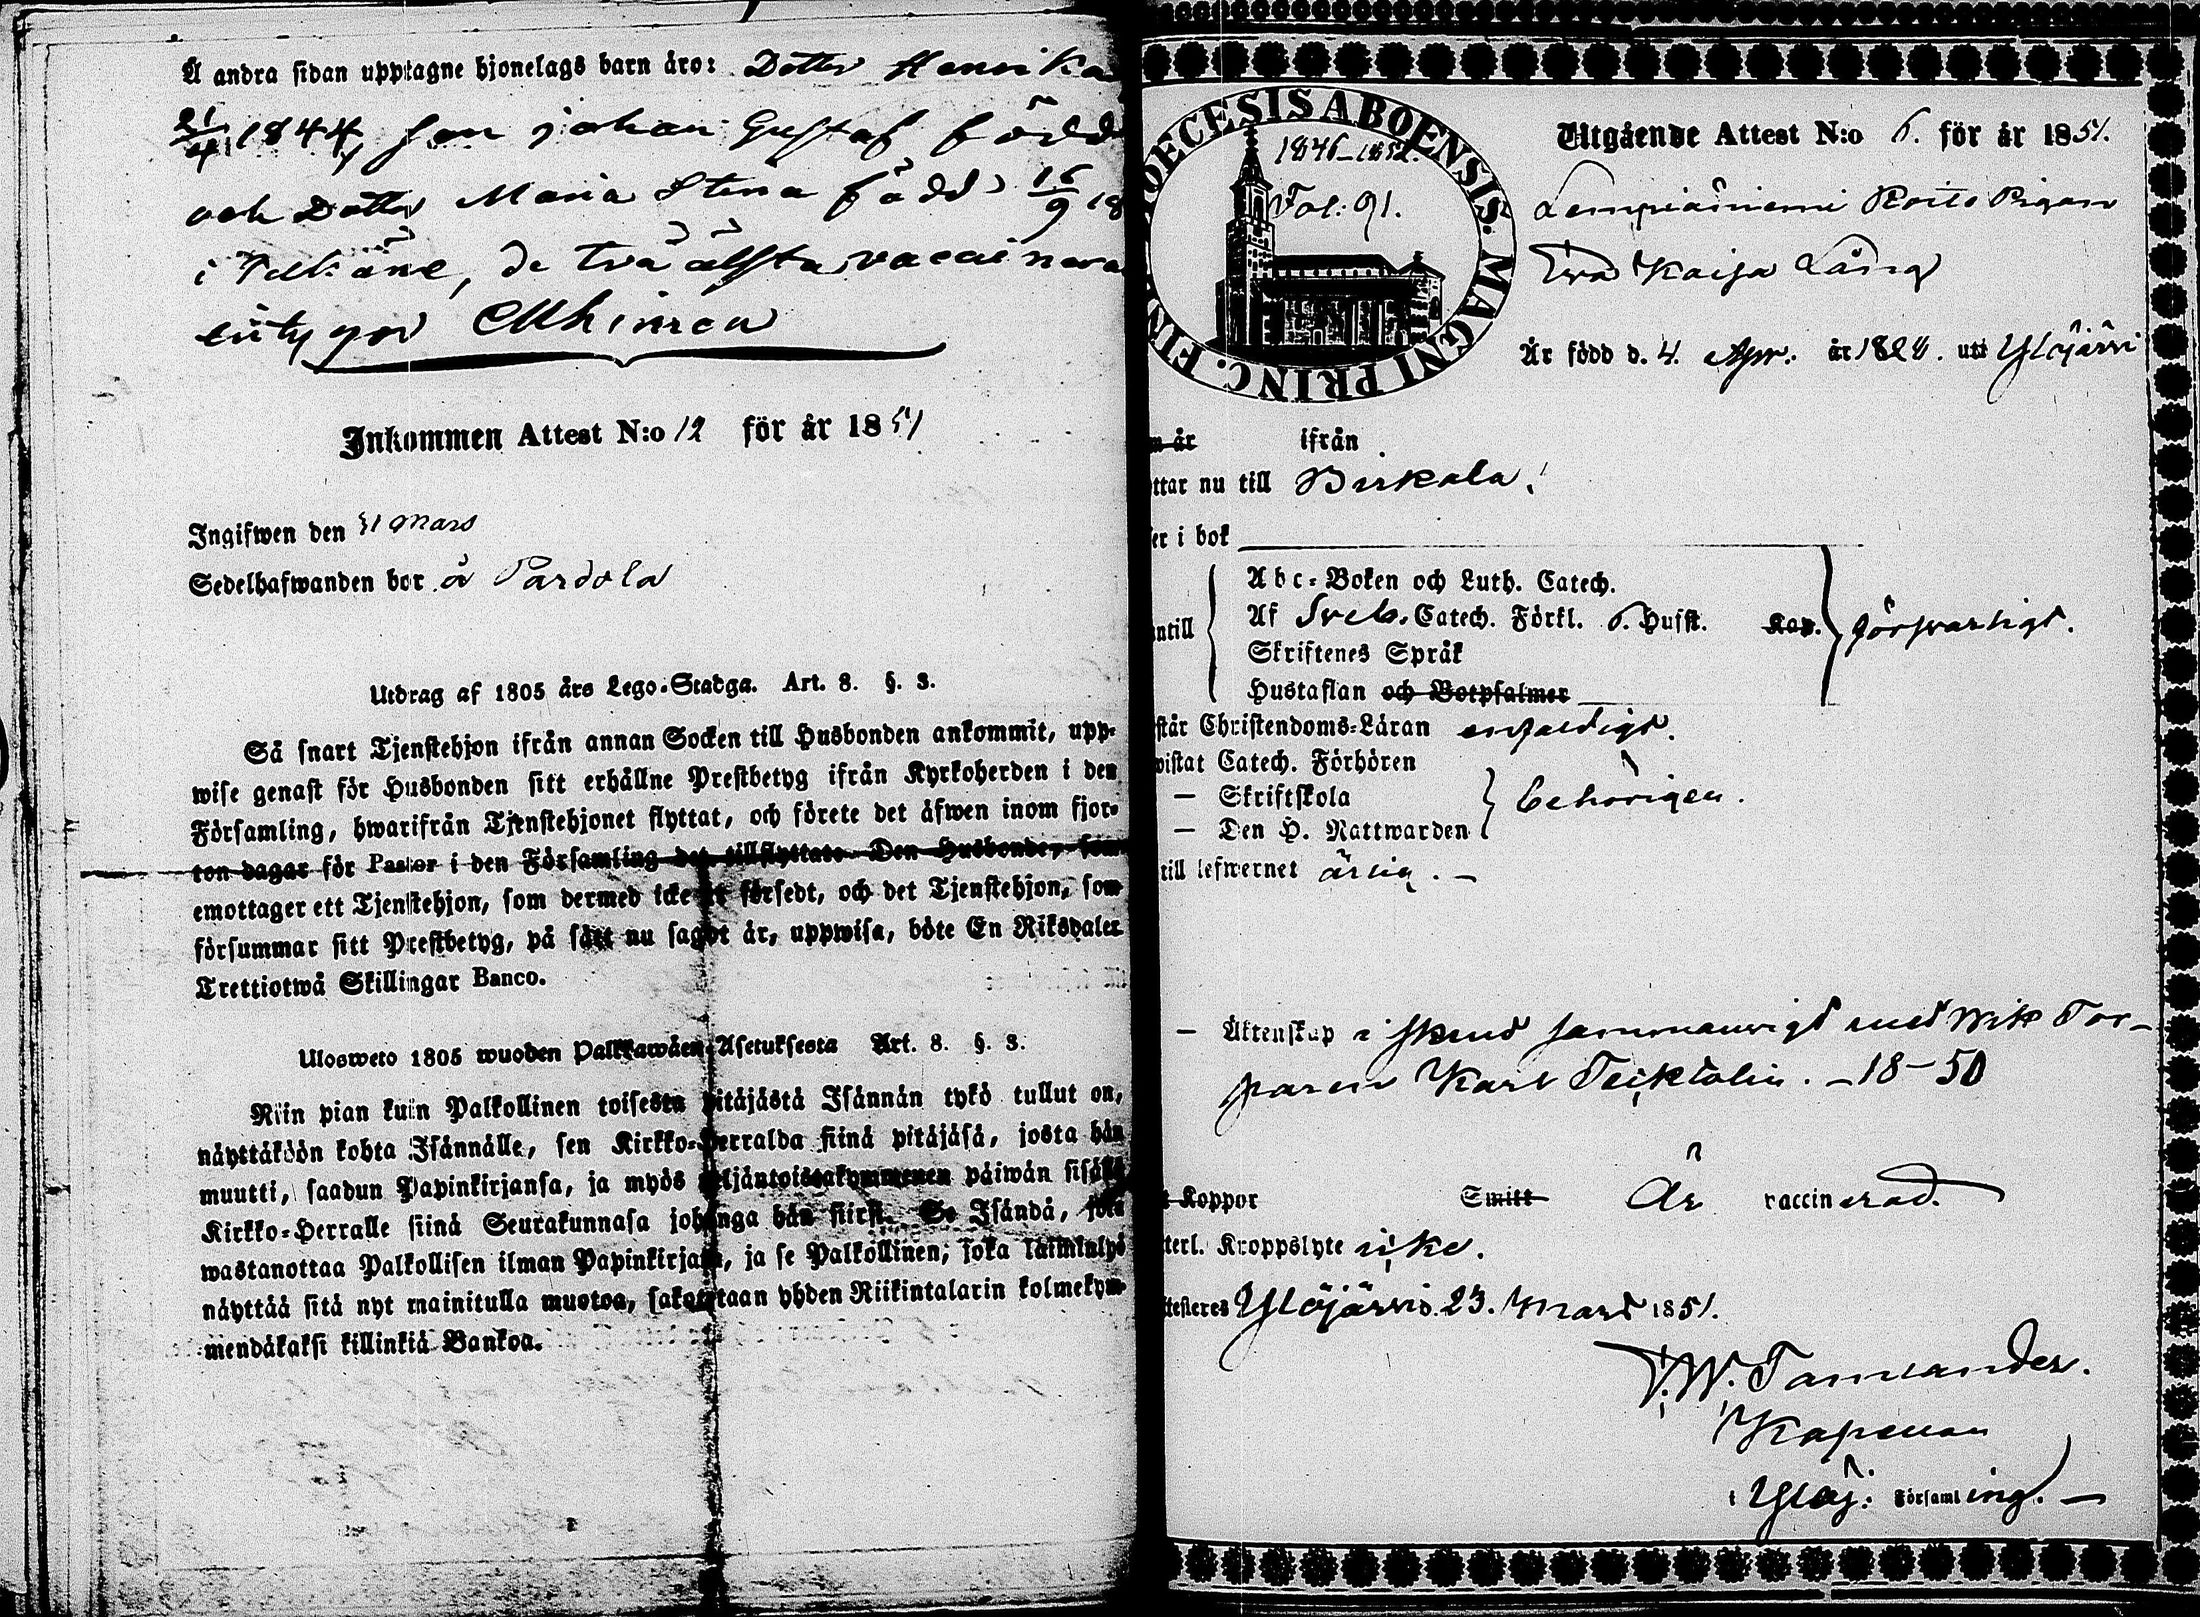 Å andra sidan upptagne hjonelags barn äro: Dotter Henrika
21/4 1844, son Johan Gustaf född
och Dotter Maria Stina född 16/9 18
i , de två älsta vaccinera
intygar
Inkommen Attest N:o 12 för år 1851
Ingifwen den 31 Mars
Sedelhafwanden bor å Pardola
Utdrag af 1805 års Lego-Stadga. Art. 8. §. 3.
Så snart Tjenstehjon ifrån annan Socken till Husbonden ankommit, upp-
wise genast för Husbonden sitt erhållne Prestbetyg ifrån Kyrkoherden i den
Församling, hwarifrån Tjenstehjonet flyttat, och förete det äfwen inom fjor-
ton dagar för Pastor i den Församling det tillflyttat. Den Husbonde, som
emottager ett Tjenstehjon, som dermed icke är försedt, och det Tjenstehjon, som
försummar sitt Prestbetyg, på sätt nu sagdt är, uppwisa, böte En Riksdaler
Trettiotwå Skillingar Banco.
Ulosweto 1805 wuoden Palkkawäen Asetuksesta Art. 8. §. 3.
Niin pian kuin Palkollinen toisesta pitäjästä Isännän tykö tullut on,
näyttäköön kohta Isännälle, sen Kirkko-Herralda siinä pitäjäsä, josta hän
muutti, saadun Papinkirjansa, ja myös neljäntoistakymmenen päiwän sisällä
Kirkko-Herralle siinä Seurakunnasa johonga hän siirsi. Se Isändä, joka
wastanottaa Palkollisen ilman Papinkirjata, ja se Palkollinen, joka laiminlyö
näyttää sitä nyt mainitulla muotoa, sakotetaan yhden Riikintalarin kolmekym-
mendäkaksi killinkiä Bankoa.
DIOECESIS ABOENSIS. MAGNI PRINC. FIN
1846–1852.
Fol: 91.
Utgående Attest N:o 6. för år 1851.
Lempiäniemi Roito Pigan
Eva Kaisa Lång
Är född d. 4. Apr. år 1828. uti Ylöjärvi
n år ifrån
ttar nu till Birkala.
er i bok
Abc-Boken och Luth. Catech.
antill Af Sveb. Catech. Förkl. 6. Hufst. Kap. försvarligt.
Skriftenes Språk
Hustaflan och Botpsalmer
står Christendoms-Läran enfaldigt.
wistat Catech. Förhören
— Skriftskola behörigen.
— Den H. Nattwarden
till lefwernet ärlig. —
— Äktenskap i Skrud sammanvigt med Tor-
paren Karl . — 18–50
t Koppor Smitt Är vaccinerad.
terl. Kroppslyte icke.
ttesteres Ylöjärvi 23. Mars 1851.
V. W. Tamlander.
Kapellan
i Ylöj: Församling. —